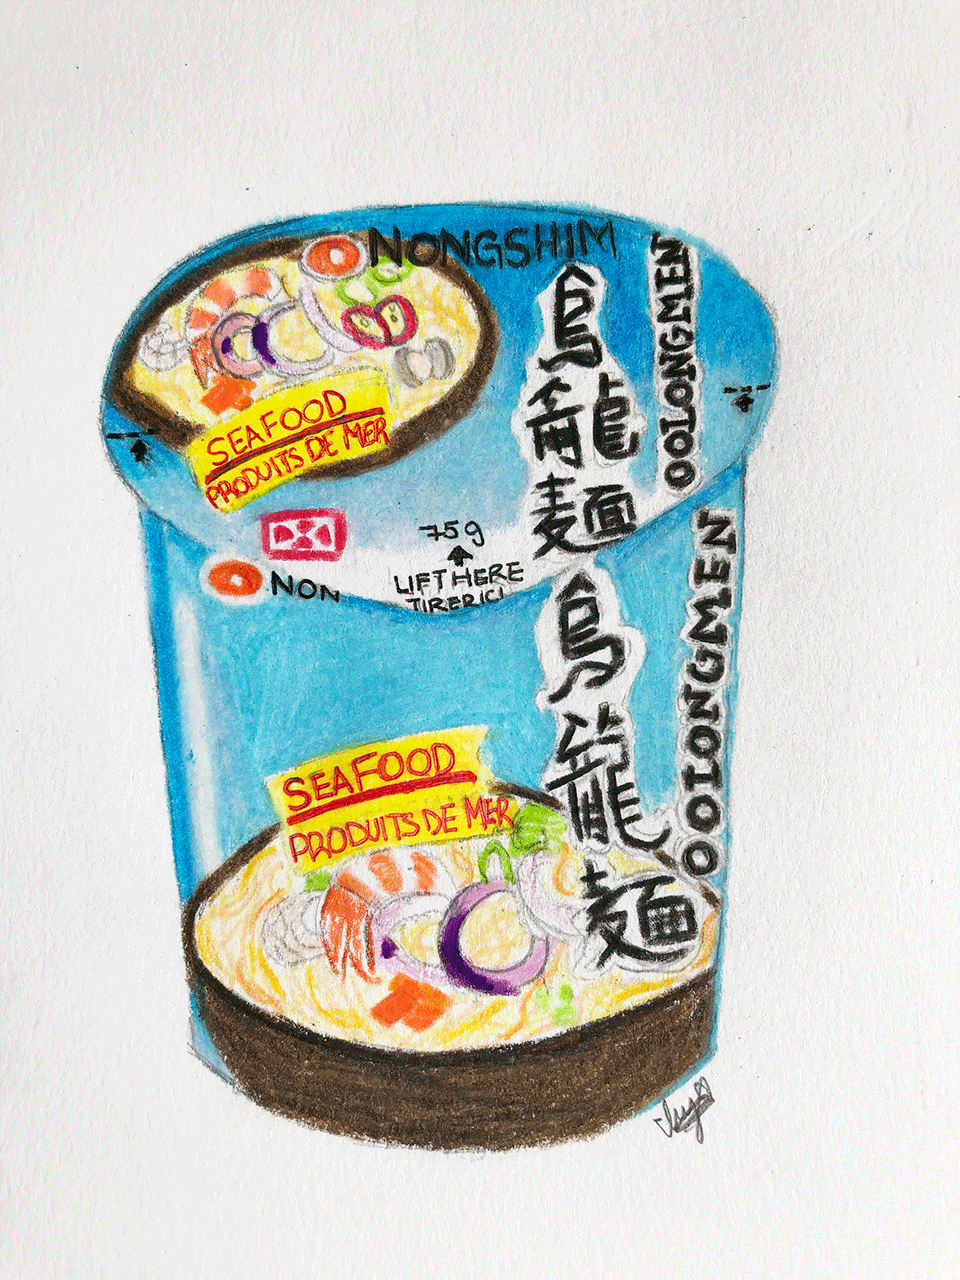 NONGSHIM
烏龍麵
OOLONGMEN
SEAFOOD
PRODUITS DE MER
75g
LIFT HERE
TIRER ICI
NON
烏龍麵
OOLONGMEN
SEAFOOD
PRODUITS DE MER